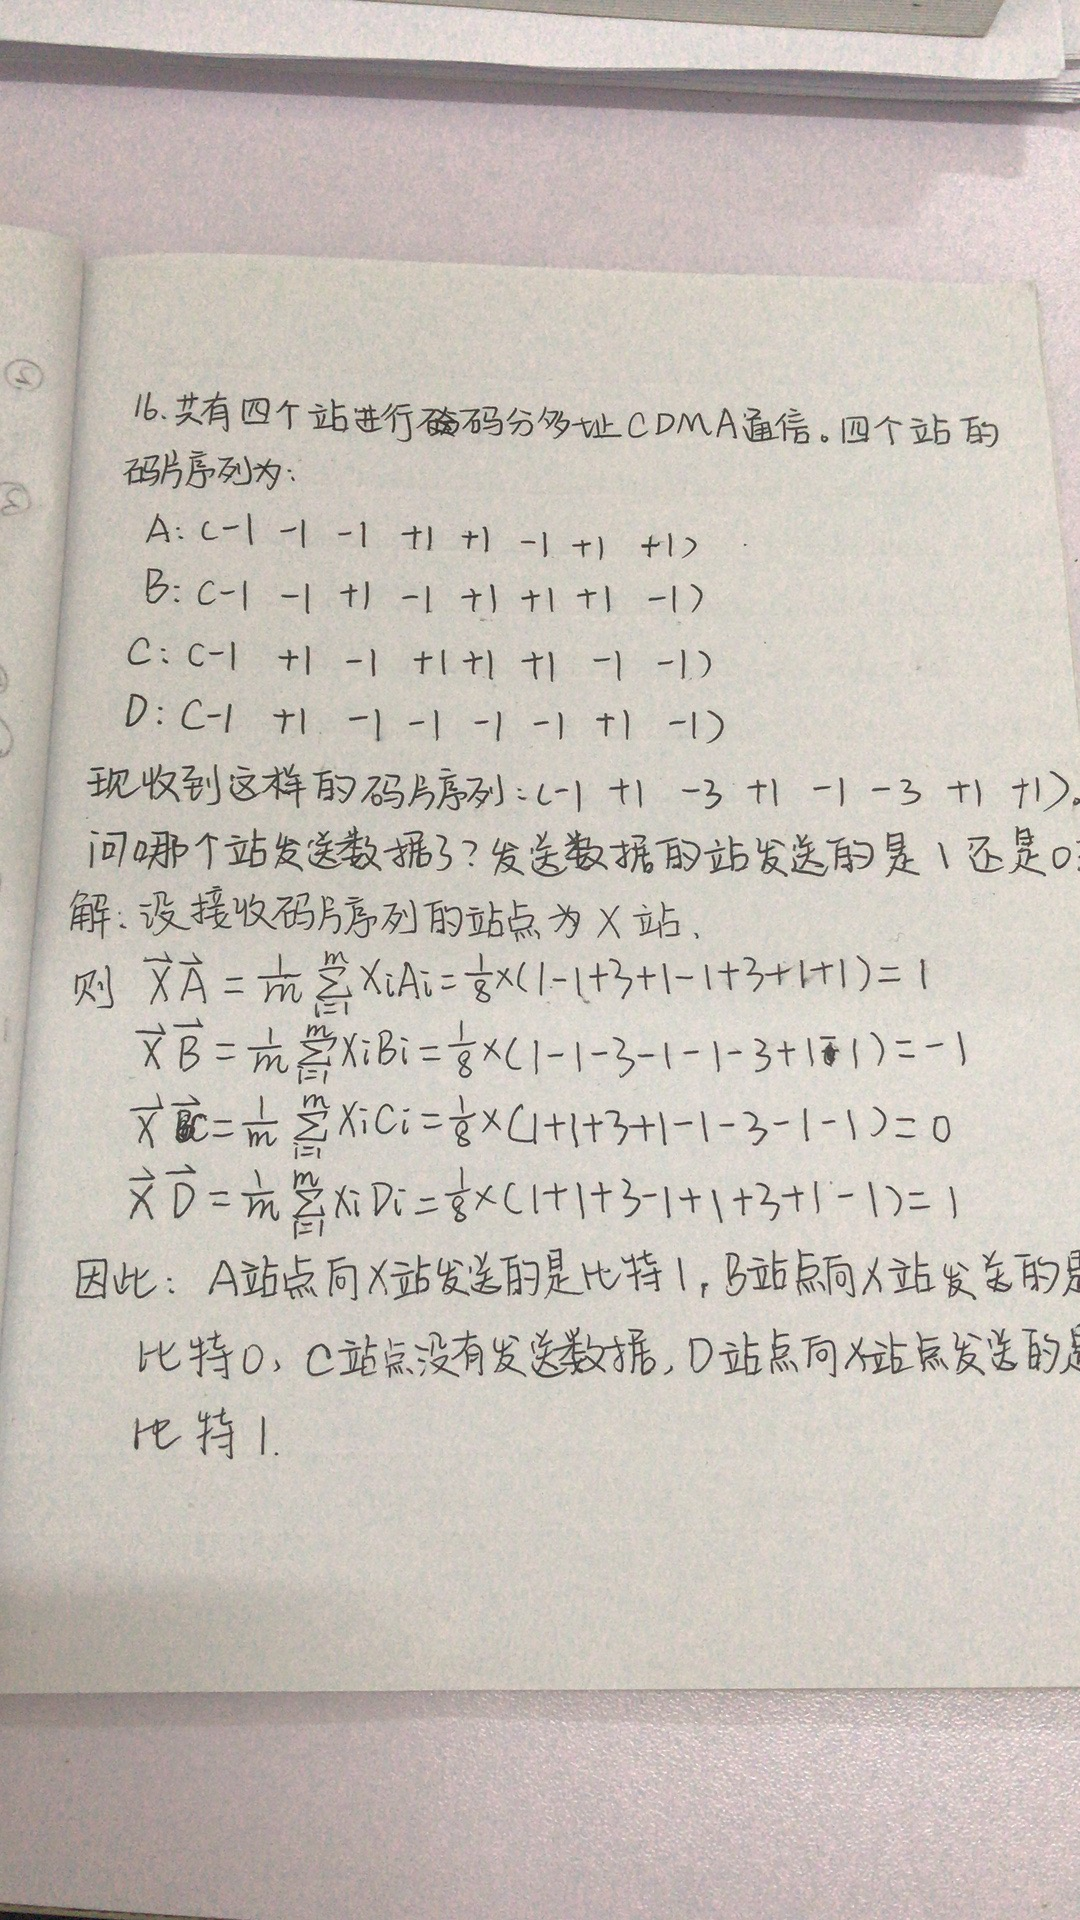 16.共有四个站进行码分多址CDMA通信。四个站的
码片序列为:
A:(-1 -1 -1 +1 +1 -1 +1 +1)
B:(-1 -1 +1 -1 +1 +1 +1 -1)
C:(-1 +1 -1 +1 +1 +1 -1 -1)
D:(-1 +1 -1 -1 -1 -1 +1 -1)
现收到这样的码片序列:(-1 +1 -3 +1 -1 -3 +1 +1)。
问哪个站发送数据了?发送数据的站发送的是1还是0
解:设接收码片序列的站点为X站,
则 X⃗A⃗=1/m∑_{i=1}^{m}XiAi=1/8×(1-1+3+1-1+3+1+1)=1
X⃗B⃗=1/m∑_{i=1}^{m}XiBi=1/8×(1-1-3-1-1-3+1-1)=-1
X⃗C⃗=1/m∑_{i=1}^{m}XiCi=1/8×(1+1+3+1-1-3-1-1)=0
X⃗D⃗=1/m∑_{i=1}^{m}XiDi=1/8×(1+1+3-1+1+3+1-1)=1
因此:A站点向X站发送的是比特1,B站点向X站发送的是
比特0,C站点没有发送数据,D站点向X站点发送的是
比特1.
②
③